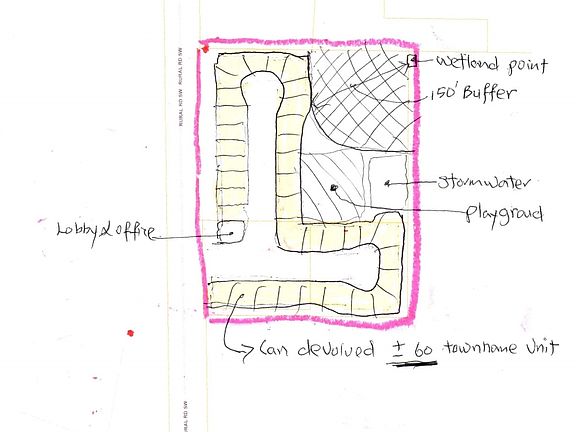 RURAL RD SW RURAL RD SW
wetland point
150' Buffer
stormwater
playgroud
Lobby & offire
Can devolved ± 60 townhome Unit
RURAL RD SW